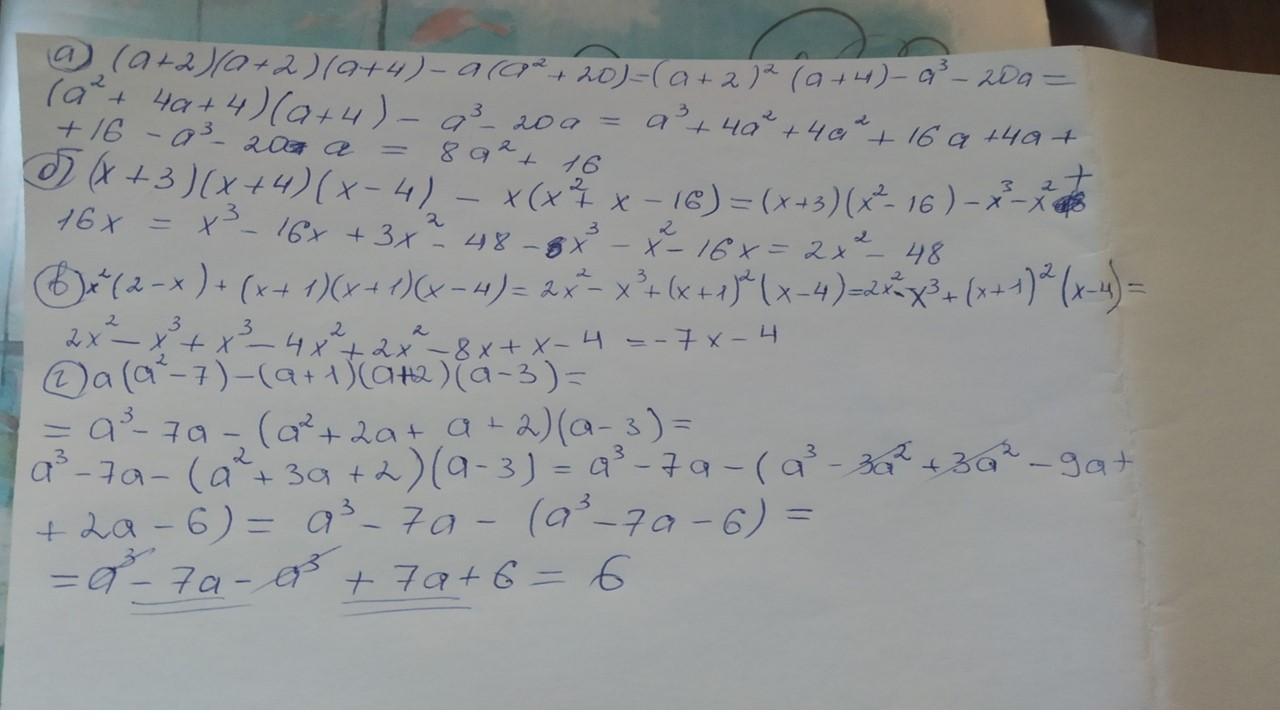 а) (a+2)(a+2)(a+4) - a(a² + 20) = (a+2)² (a+4) - a³ - 20a =
(a² + 4a + 4)(a+4) - a³ - 20a = a³ + 4a² + 4a² + 16a + 4a +
+ 16 - a³ - 20 a = 8a² + 16
б) (x+3)(x+4)(x-4) - x(x² + x - 16) = (x+3)(x² - 16) - x³ - x² +
16x = x³ - 16x + 3x² - 48 - x³ - x² - 16x = 2x² - 48
в) x²(2-x) + (x+1)(x+1)(x-4) = 2x² - x³ + (x+1)² (x-4) = 2x² - x³ + (x+1)² (x-4) =
2x² - x³ + x³ - 4x² + 2x² - 8x + x - 4 = -7x - 4
г) a(a² - 7) - (a+1)(a+2)(a-3) =
= a³ - 7a - (a² + 2a + a + 2)(a-3) =
a³ - 7a - (a² + 3a + 2)(a-3) = a³ - 7a - (a³ - 3a² + 3a² - 9a +
+ 2a - 6) = a³ - 7a - (a³ - 7a - 6) =
= a³ - 7a - a³ + 7a + 6 = 6